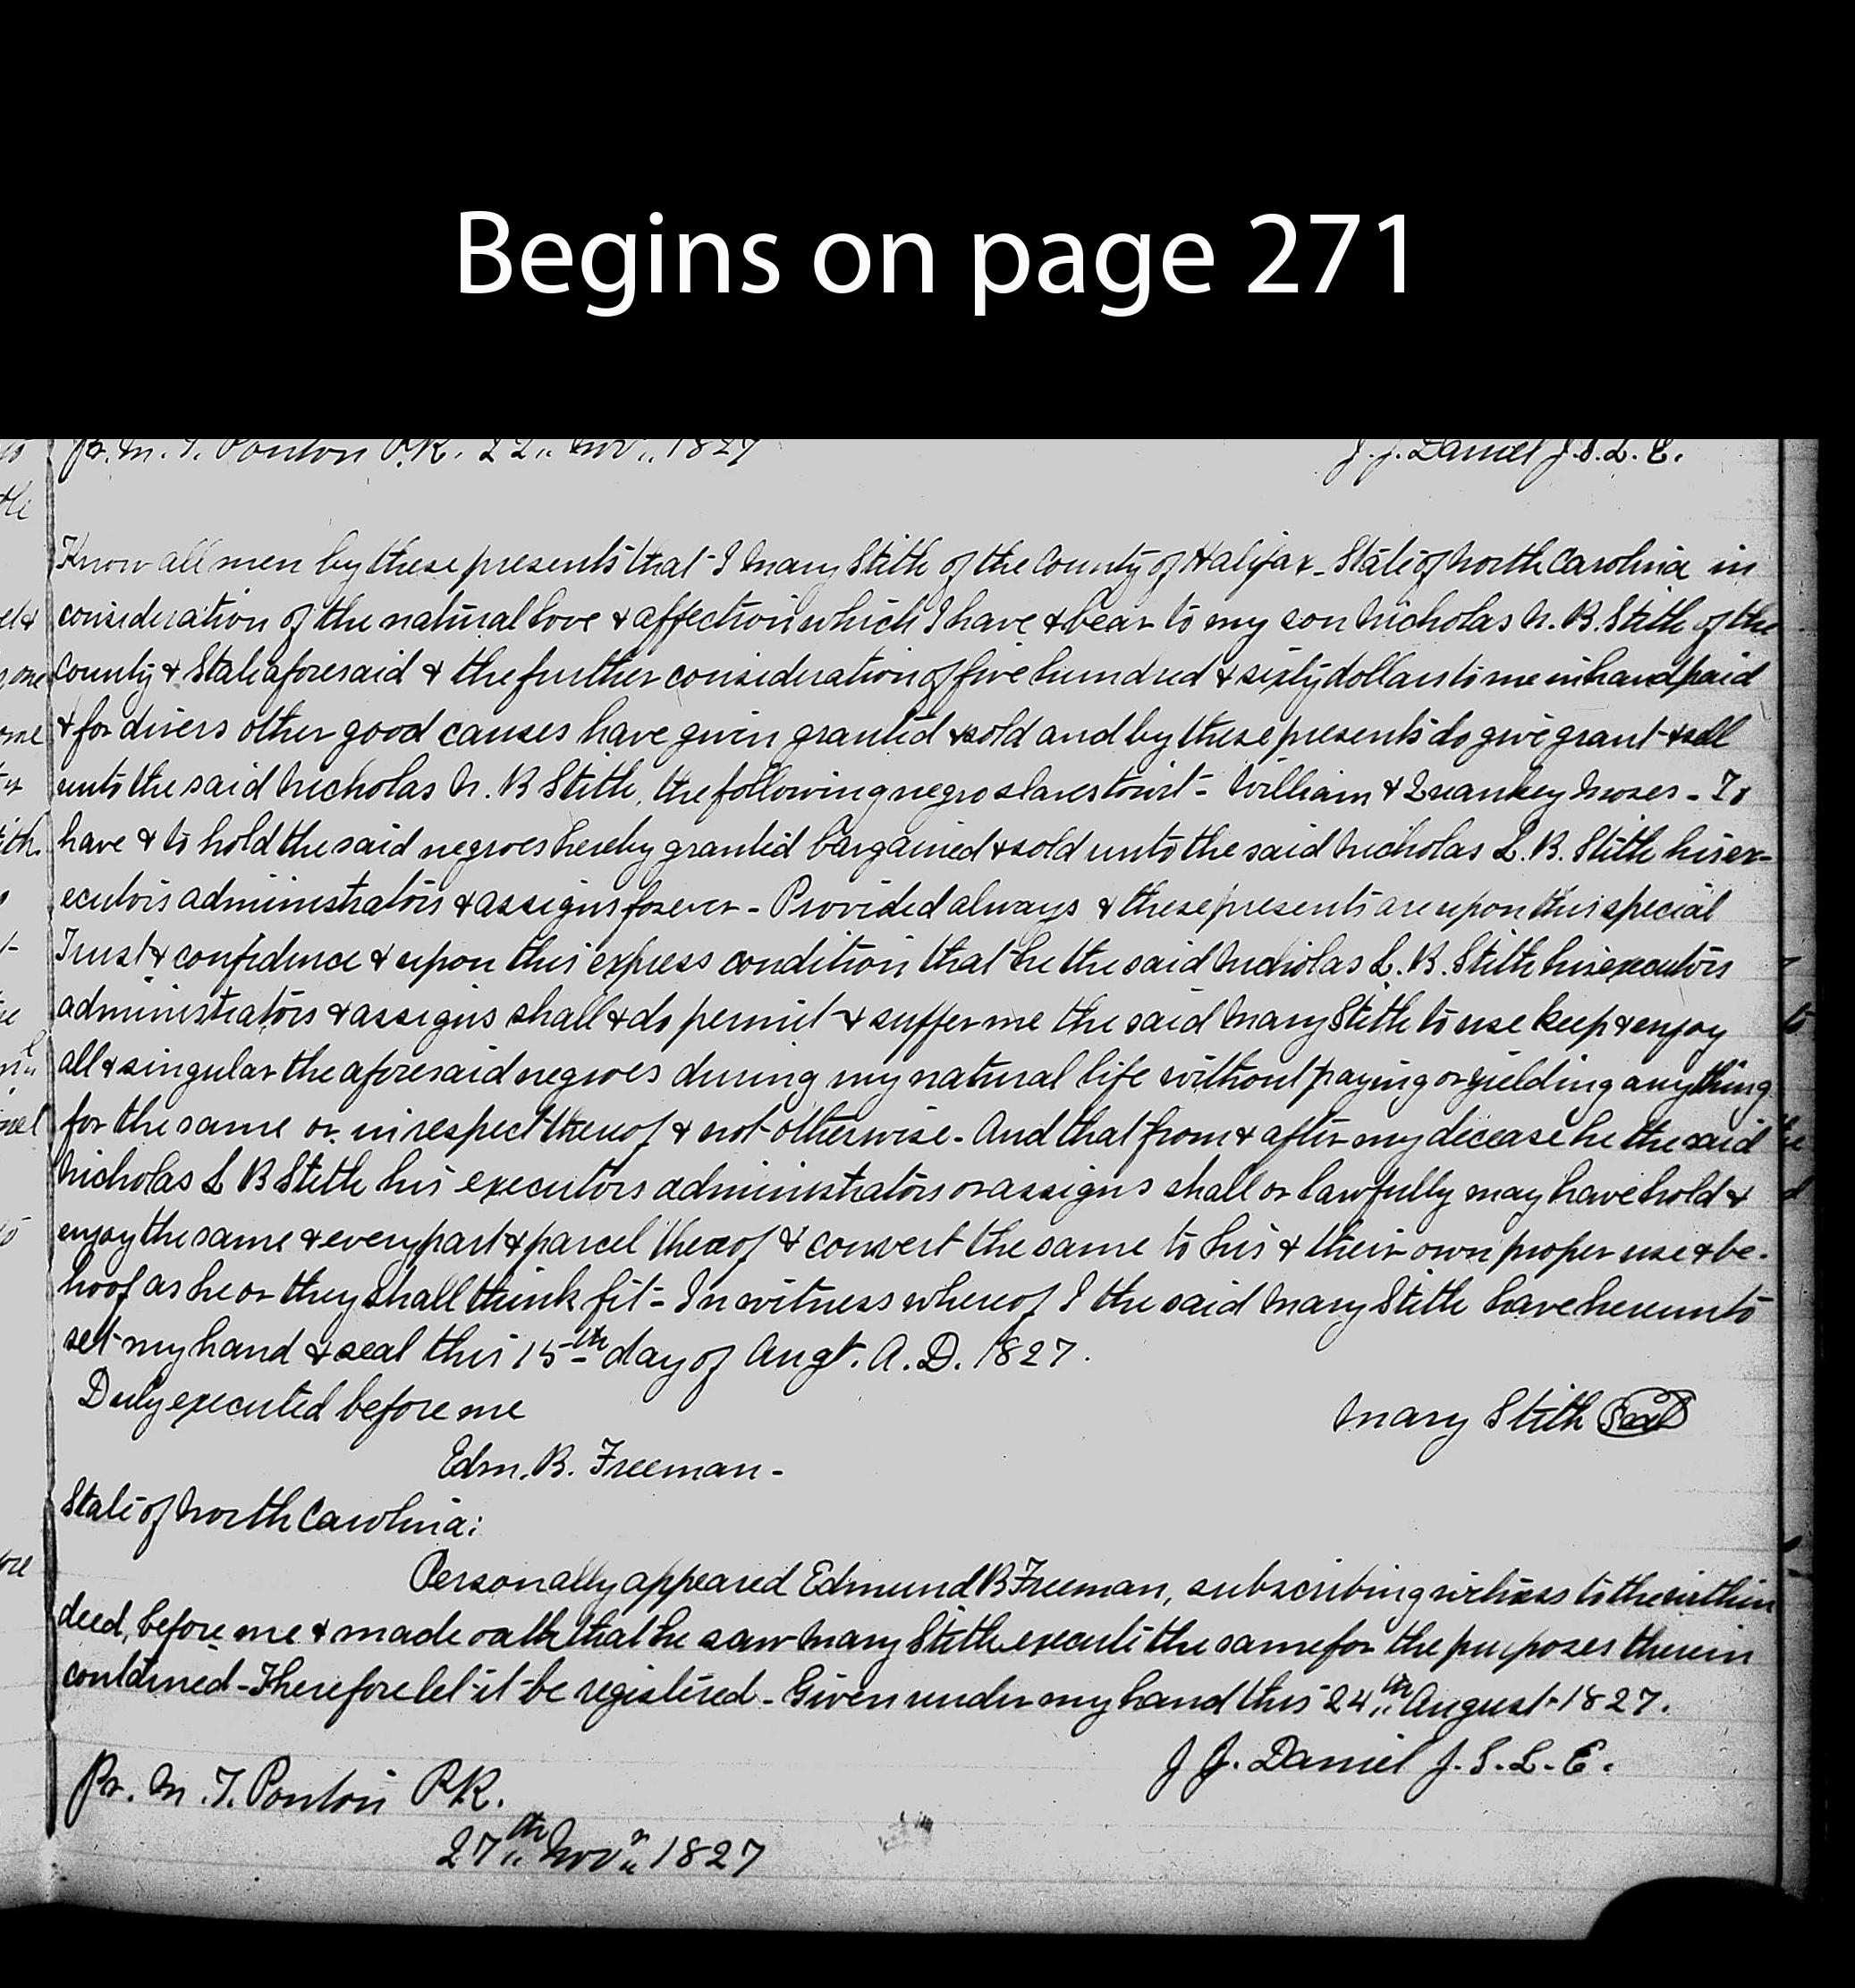 Begins on page 271
Pr. M. T. Ponton P.R. 22,, Nov,, 1827
J. J. Daniel J.S.L.E.
Know all men by these presents that I Mary Stith of the County of Halifax - State of North Carolina in
consideration of the natural love & affection which I have & bear to my son Nicholas N. B. Stith of the
County & State aforesaid & the further consideration of five hundred & sixty dollars to me in hand paid
& for divers other good causes have given granted & sold and by these presents do give grant & sell
unto the said Nicholas N. B Stith, the following negro slaves towit - William & Quankey Moses - To
have & to hold the said negroes hereby granted bargained & sold unto the said Nicholas L. B. Stith his ex-
ecutors administrators & assigns forever - Provided always & these presents are upon this special
Trust & confidence & upon this express condition that he the said Nicholas L. B. Stith his executors
administrators & assigns shall & do permit & suffer me the said Mary Stith to use keep & enjoy
all & singular the aforesaid negroes during my natural life without paying or yielding anything
for the same or in respect thereof & not otherwise - And that from & after my decease he the said
Nicholas L B Stith his executors administrators or assigns shall or lawfully may have hold &
enjoy the same & every part & parcel thereof & convert the same to his & their own proper use & be-
hoof as he or they shall think fit - In witness whereof I the said Mary Stith have hereunto
set my hand & seal this 15th day of Augt. A.D. 1827.
Duly executed before me
Mary Stith Seal
Edm. B. Freeman -
State of North Carolina:
Personally appeared Edmund B Freeman, subscribing witness to the within
deed, before me & made oath that he saw Mary Stith execute the same for the purposes therein
contained - Therefore let it be registered - Given under my hand this 24,,th August 1827.
J J. Daniel J.S.L.E.
Pr. M. T. Ponton P.R.
27,,th Nov,,r 1827